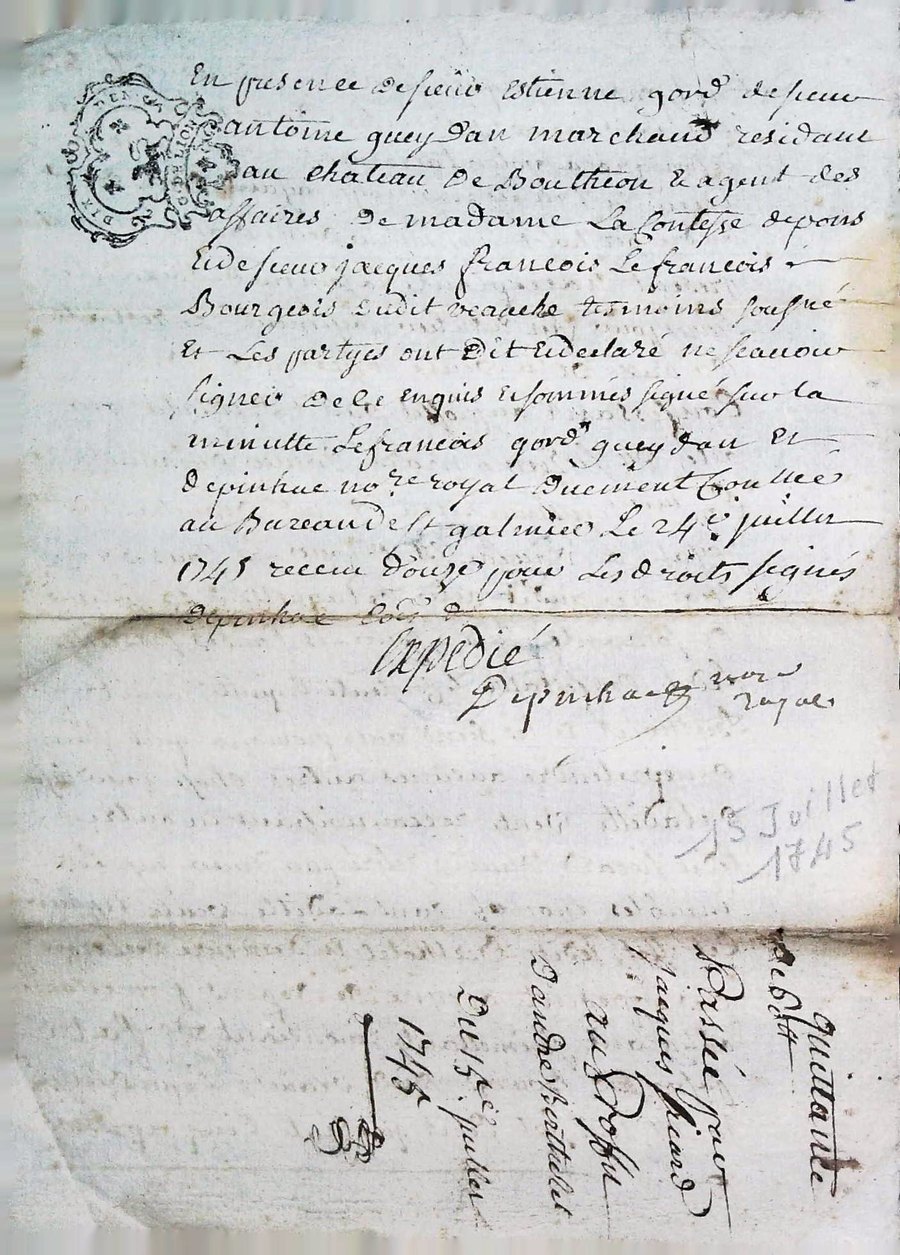 En presence de sieur Estienne gord de sieur
antoine gueydan marchand residant
au chateau De Boutheon & agent des
affaires de madame La Contesse de pons
Et de sieur jacques francois Lefrancois
Bourgeois dudit veauche tesmoins sousné
Et Les partyes ont Dit Et declaré ne scavoir
signer de ce enquis et sommés signé sur la
minutte Lefrancois gord gueydan Et
depinhac nore royal Duement Controllé
au Bureau de St galmier Le 24e juillet
1745 receu douze pour Les droits signés
depinhac
Expedié
Depinhac nore
royal
15 Juillet
1745
quittance
de
Passée par
jacques picard
au Profit
D'andré Berthelet
Du 15e juillet
1745